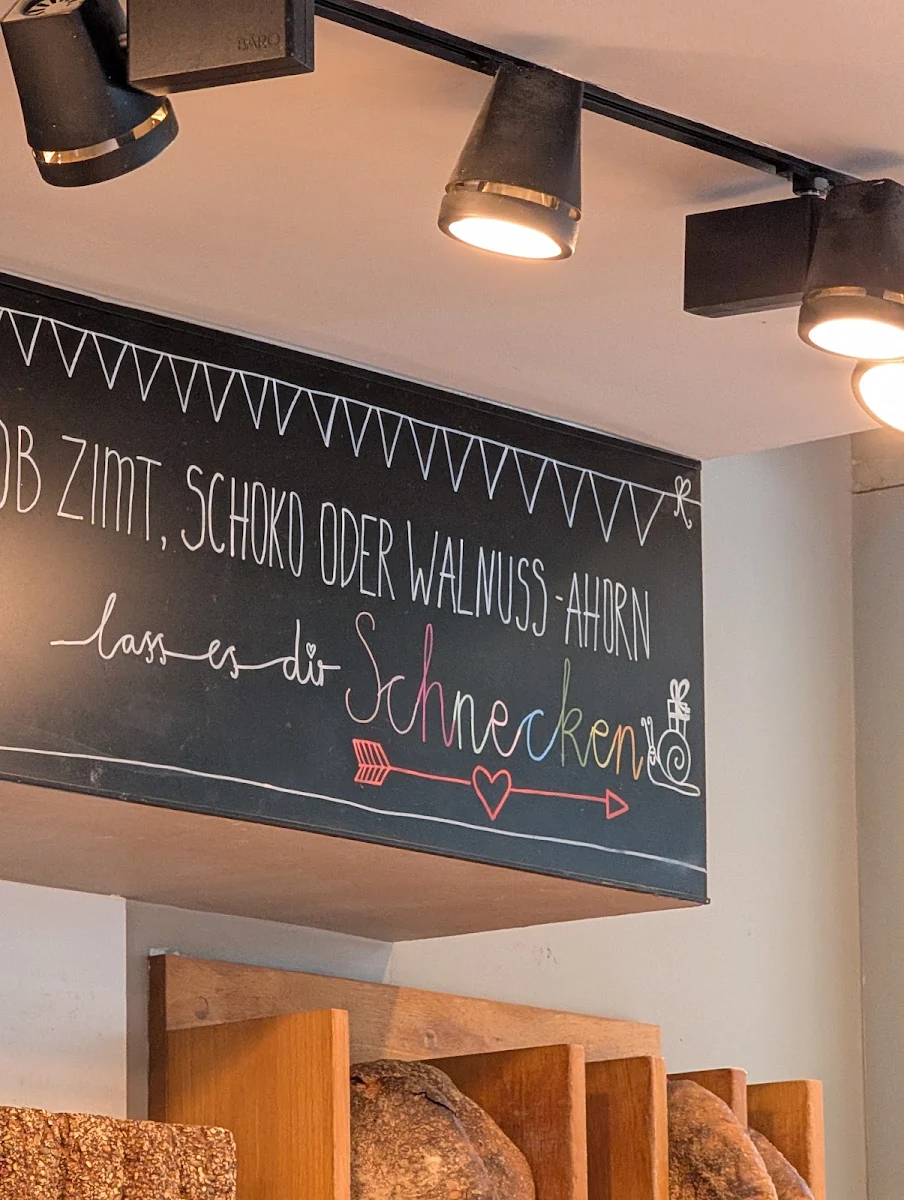 BÄRO
OB ZIMT, SCHOKO ODER WALNUSS-AHORN
lass es dir Schnecken